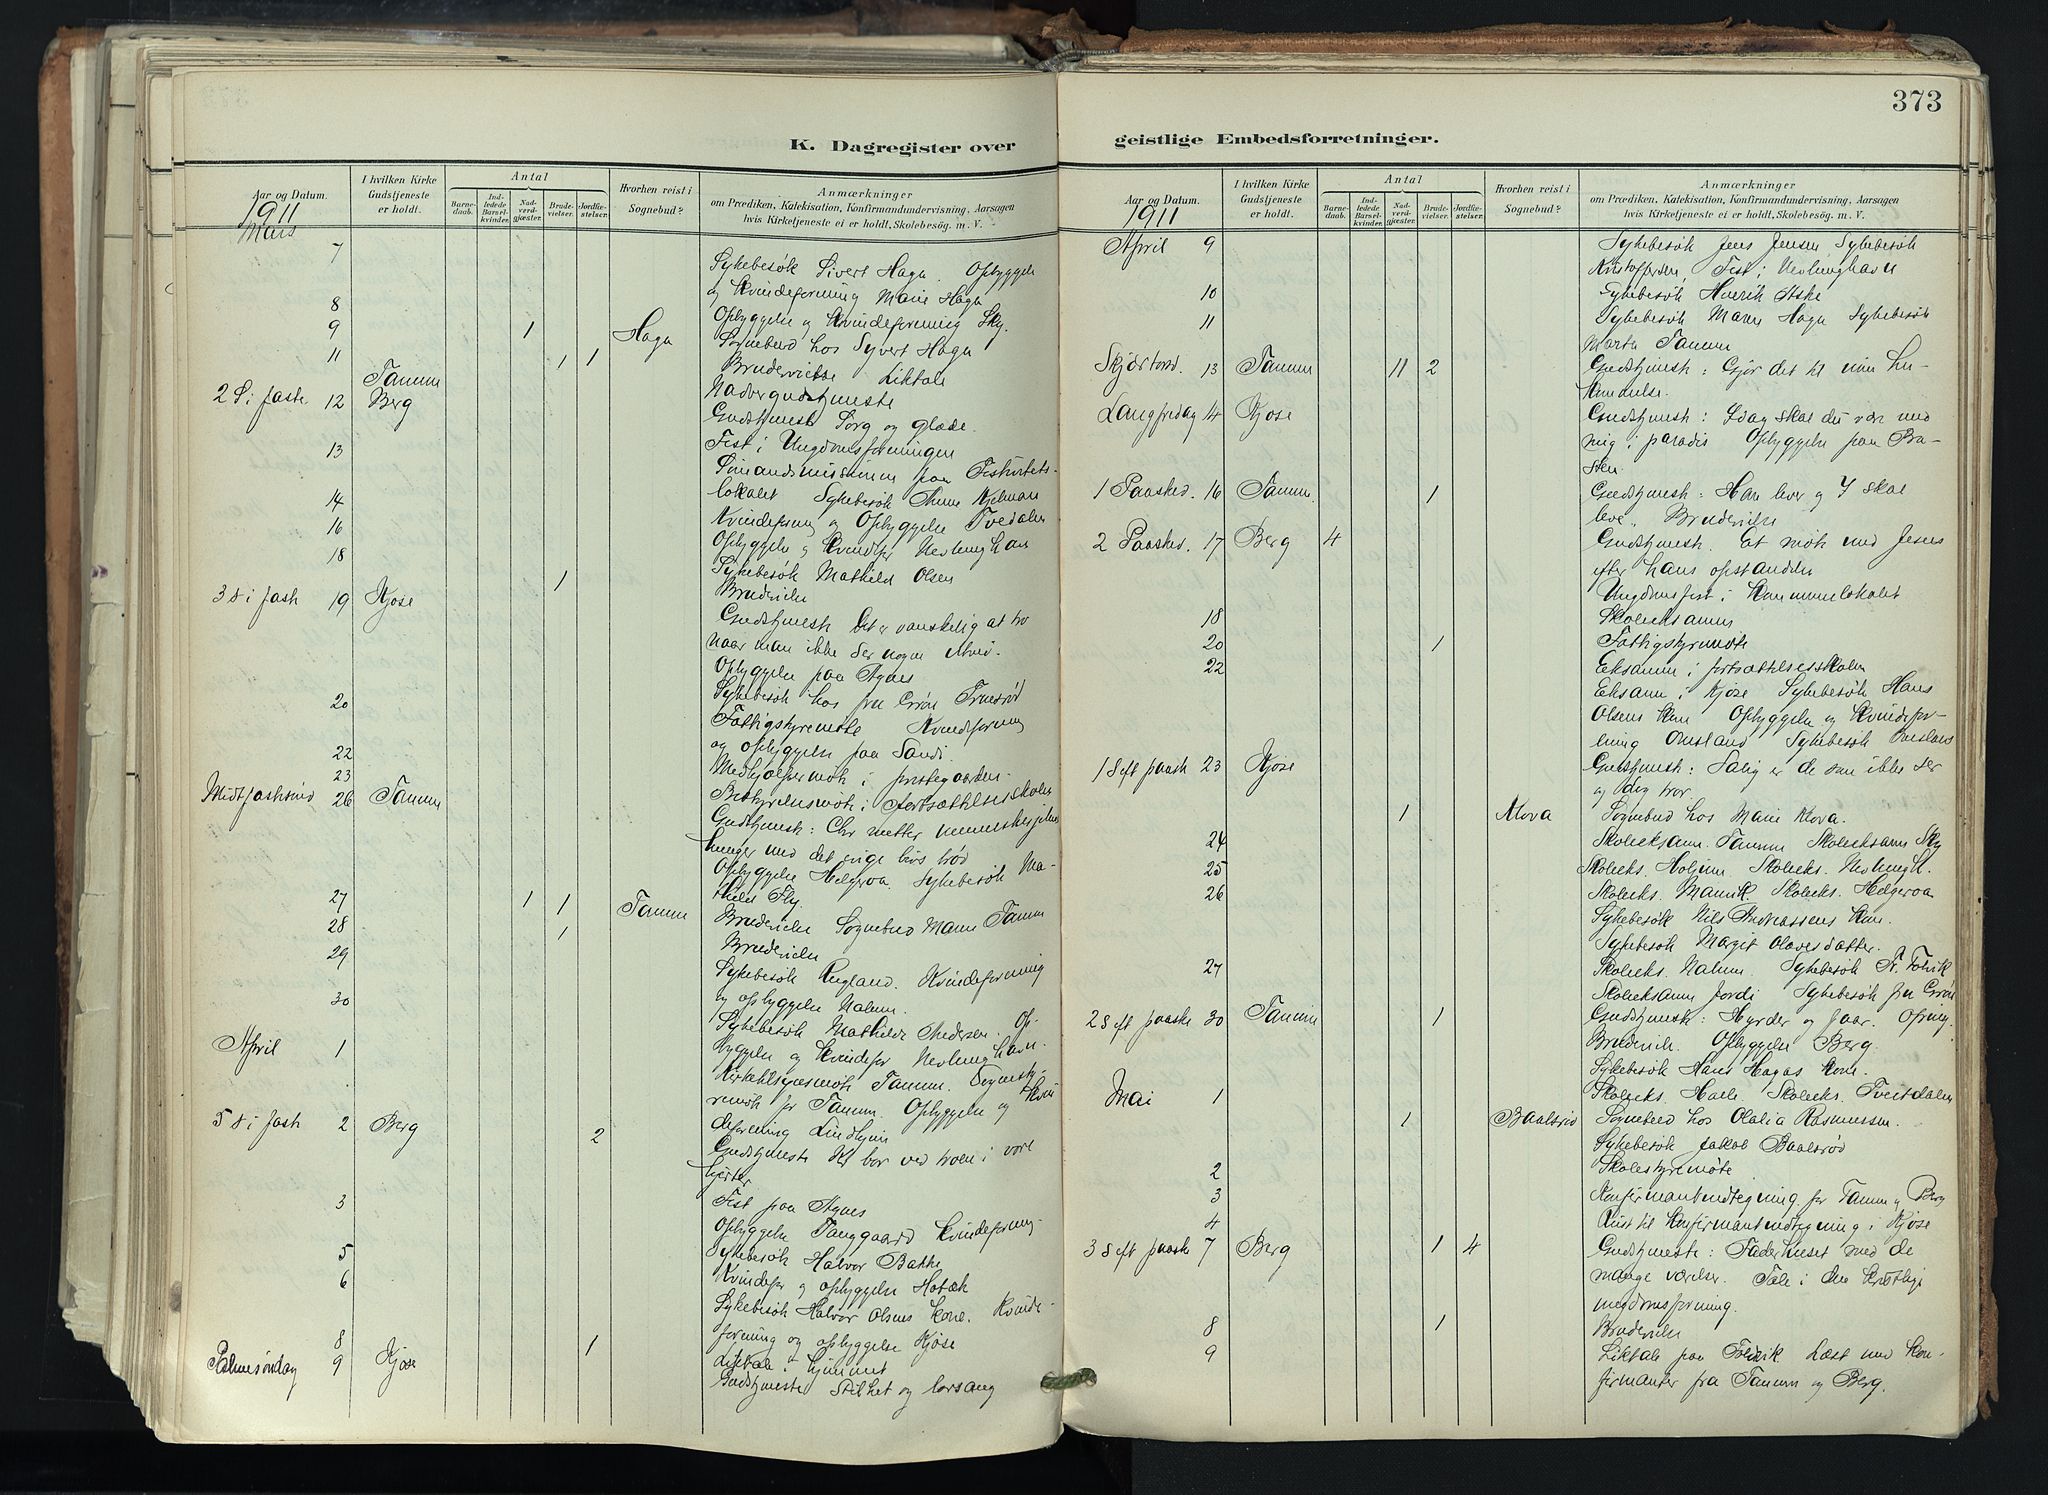 373
K. Dagregister over
geistlige Embedsforretninger.
Aar og Datum.
I hvilken Kirke Gudstjeneste er holdt.
Antal
Barnedaab.
Indledede Barselkvinder.
Nadverdgjæster.
Brudevielser.
Jordfæstelser.
Hvorhen reist i Sognebud?
Anmærkninger
om Prædiken, Katekisation, Konfirmandundervisning, Aarsagen
hvis Kirketjeneste ei er holdt, Skolebesög. m. V.
1911
Mars
7 Sykebesök Sivert Haga. Opbyggelse
og Kvindeforening Marie Haga
8 Opbyggelse og Kvindeforening Sky.
9 1 Haga Sognebud hos Syvert Haga
11 1 1 Brudevielse Liktale
Tanum Nadvergudstjeneste
2 S. i faste 12 Berg Gudstjeneste Sorg og glæde.
Fest i Ungdomsforeningen
13 Sömandsmissionen paa Festivitets-
lokalet Sykebesök
14 Kvindeforening og Opbyggelse Tvedalen
16 Opbyggelse og Kvindefor Nevlunghavn
18 Sykebesök Mathilde Olsen
1 Brudevielse
3 S i faste 19 Kjose Gudstjeneste Det er vanskelig at tro
naar man ikke ser nogen
Opbyggelse paa Agnes
20 Sykebesök hos fru Grön
Fattigstyremöte Kvindeforening
og opbyggelse paa Sandi.
22 Medhjælpermöte i prestegaarden.
23 Bestyrelsesmöte i fortsættelsesskolen
Midtfastesönd 26 Tanum Gudstjeneste: Chr mætter menneskesjelens
hunger med det evige livs bröd
Opbyggelse Helgeroa. Sykebesök Ma-
thilde
27 1 1 Tanum Brudevielse Sognebud Maren Tanum
28 1 Brudevielse
29 Sykebesök Rugland. Kvindeforening
og opbyggelse Nalum.
30 Sykebesök Mathilde Andersen. Op-
byggelse og Kvindefor Nevlunghavn.
April 1 Tanum. Sognesty-
remöte for Tanum. Opbyggelse og Kvin
deforening Lindhjem
5 S i faste 2 Berg 2 Gudstjeneste Kr bor ved troen i vore
hjerter
3 Fest paa Agnes
Opbyggelse Tanggaard Kvindeforening.
5 Sykebesök Halvor Bakke
6 Kvindefor og opbyggelse Holbæk
Sykebesök Halvor Olsens kone. Kvinde-
forening og opbyggelse Kjose
8 1 Liktale i hjemmet
Palmesöndag 9 Kjose Gudstjeneste Stilhet og lovsang
Aar og Datum.
I hvilken Kirke Gudstjeneste er holdt.
Antal
Barnedaab.
Indledede Barselkvinder.
Nadverdgjæster.
Brudevielser.
Jordfæstelser.
Hvorhen reist i Sognebud?
Anmærkninger
om Prædiken, Katekisation, Konfirmandundervisning, Aarsagen
hvis Kirketjeneste ei er holdt, Skolebesög. m. V.
1911
April 9 Sykebesök Jens Jensen Sykebesök
Kristoffersen. Fest i Nevlunghavn
10 Sykebesök Henrik Aske
11 Sykebesök Maren Haga Sykebesök
Marta Tanum
Skjærtorsd. 13 Tanum 11 2 Gudstjeneste: Gjör det til min ihu-
kommelse.
Langfredag 14 Kjose Gudstjeneste: Idag skal du være med
mig i paradis Opbyggelse paa Ba-
kken
1 Paasked. 16 Tanum. 1 Gudstjeneste: Han lever og I skal
leve. Brudevielse
2 Paasked. 17 Berg 4 Gudstjeneste. Et möte med Jesus
efter hans opstandelse
Ungdomsfest i Kommunelokalet
18 Skoleeksamen
20 1 Fattigstyremöte
22 Eksamen i fortsættelsesskolen
Eksamen i Kjose Sykebesök Hans
Olsens kone Opbyggelse og Kvindefor-
ening Omsland Sykebesök Omsland
1 S eft paaske 23 Kjose Gudstjeneste: Salig er de som ikke ser
og dog tror.
1 Klova Sognebud hos Marie Klova.
24 Skoleeksamen Tanum Skoleeksamen Sky
25 Skoleeks. Holjum Skoleeks. Nevlungh.
26 Skoleeks. Manvik Skoleeks. Helgeroa
Sykebesök Nils Andreassens kone.
Sykebesök Margit Olavesdatter.
27 Skoleeks. Nalum. Sykebesök Fr. Foldvik
Skoleeksamen Jordi Sykebesök fru Grön
2 S eft paaske 30 Tanum 1 Gudstjeneste: Hyrder og faar. Ofring.
Brudeviels. Opbyggelse Berg.
Sykebesök Hans Hagas kone.
Mai 1 Skoleeks. Skoleeks. Tveitdalen
1 Baalsröd Sognebud hos Olalia Rasmussen.
Sykebesök Jakob Baalsröd
2 Skolestyremöte
3 Konfirmantindtegning for Tanum og Berg
4 Reist til Konfirmantindtegning i Kjose
3 S eft paaske 7 Berg 1 4 Gudstjeneste: Faderhuset med de
mange værelser. Tale i den kristelige
ungdomsforening.
8 1 Brudevielse
9 Liktale paa Foldvik Læst med kon-
firmanter fra Tanum og Berg.